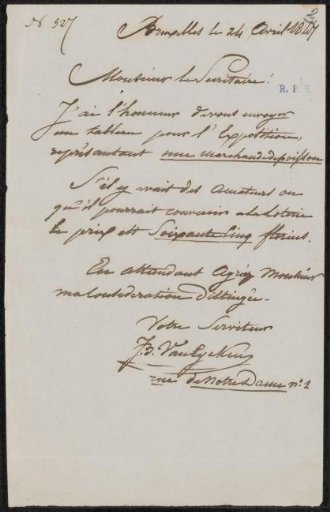 N° 327
Bruxelles le 24 Avril 1847
Monsieur le Secritaire!
R. P
J'ai l'honneur de vous envoyer
un tableau pour l'Exposition,
représentant une marchande de poisson
S'il y avait des Amateurs ou
qu'il pourrait convenir à la loterie
le prix est Soixante Cinq florins.
En attendant Agréz Monsieur
ma Considération distingée.
Votre Serviteur
J.B. Van Eycken
rue de Notre Dame n° 1